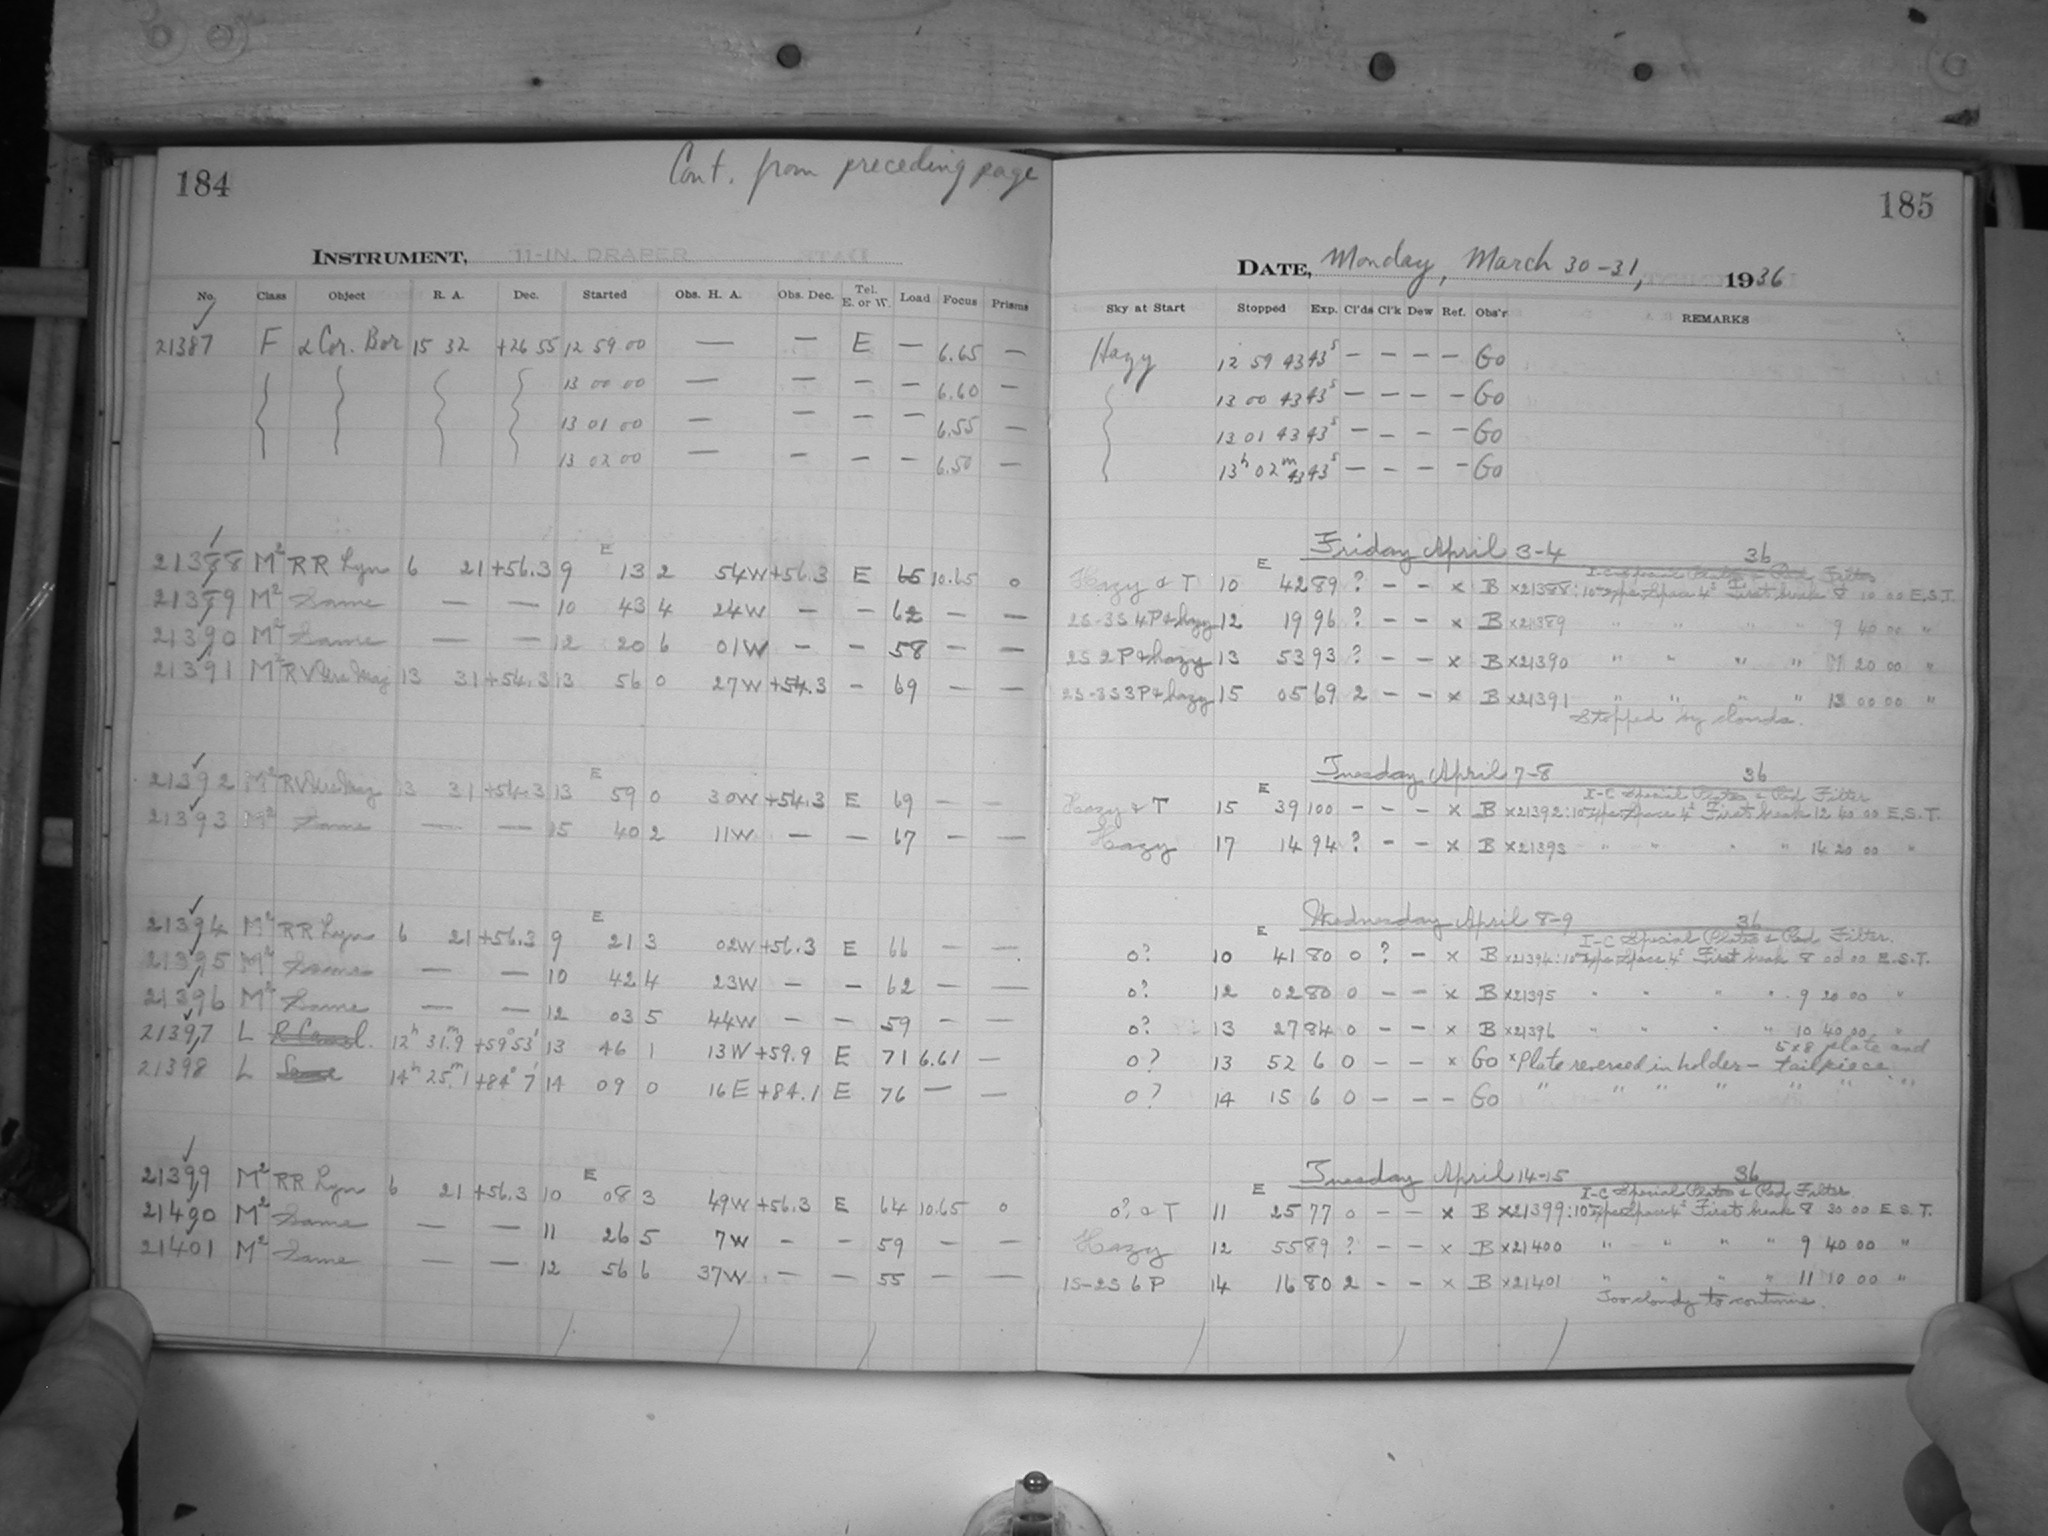 184
Cont. from preceding page
INSTRUMENT, 11-IN. DRAPER
No. Class Object R. A. Dec. Started Obs. H. A. Obs. Dec. Tel. E. or W. Load Focus Prisms
21387 F α Cor. Bor 15 32 +26 55 12 59 00 — — E — 6.65 —
13 00 00 — — — — 6.60 —
13 01 00 — — — — 6.55 —
13 02 00 — — — — 6.50 —
E
21388 M² RR Lyn 6 21 +56.3 9 13 2 54W +56.3 E 65 10.65 0
21389 M² Same — — 10 43 4 24W — — 62 — —
21390 M² Same — — 12 20 6 01W — — 58 — —
21391 M² RV Urs Maj 13 31 +54.3 13 56 0 27W +54.3 — 69 — —
E
21392 M² RV Urs Maj 13 31 +54.3 13 59 0 30W +54.3 E 69 — —
21393 M² Same — — 15 40 2 11W — — 67 — —
E
21394 M² RR Lyn 6 21 +56.3 9 21 3 02W +56.3 E 66 — —
21395 M² Same — — 10 42 4 23W — — 62 — —
21396 M² Same — — 12 03 5 44W — — 59 — —
21397 L 12ʰ 31ᵐ.9 +59° 53' 13 46 1 13W +59.9 E 71 6.61 —
21398 L 14ʰ 25ᵐ.1 +84° 7' 14 09 0 16E +84.1 E 76 — —
E
21399 M² RR Lyn 6 21 +56.3 10 08 3 49W +56.3 E 64 10.65 0
21400 M² Same — — 11 26 5 7W — — 59 — —
21401 M² Same — — 12 56 6 37W — — 55 — —
185
DATE, Monday, March 30-31, 1936
Sky at Start Stopped Exp. Cl'ds Cl'k Dew Ref. Obs'r REMARKS
Hazy 12 59 43 43ˢ — — — — Go
13 00 43 43ˢ — — — — Go
13 01 43 43ˢ — — — — Go
13ʰ 02ᵐ 43 43ˢ — — — — Go
Friday April 3-4 36
E
I-C Special Plates & Red Filter
Hazy & T 10 42 89 ? — — x B x21388: 10ᵐ Exps. Space 4ˢ First break 8 10 00 E.S.T.
2S-3S 4P & hazy 12 19 96 ? — — x B x21389 " " " " 9 40 00 "
2S 2P & hazy 13 53 93 ? — — x B x21390 " " " " 11 20 00 "
2S-3S 3P & hazy 15 05 69 2 — — x B x21391 " " " " 13 00 00 "
Stopped by clouds.
Tuesday April 7-8 36
E
I-C Special Plates & Red Filter
Hazy & T 15 39 100 — — — x B x21392: 10ᵐ Exps. Space 4ˢ First break 12 40 00 E.S.T.
Hazy 17 14 94 ? — — x B x21393 " " " " 14 20 00 "
Wednesday April 8-9 36
E
I-C Special Plates & Red Filter.
0? 10 41 80 0 ? — x B x21394: 10ᵐ Exps. Space 4ˢ First break 8 00 00 E.S.T.
0? 12 02 80 0 — — x B x21395 " " " " 9 20 00 "
0? 13 27 84 0 — — x B x21396 " " " " 10 40 00 "
0? 13 52 6 0 — — x Go xPlate reversed in holder — 5x8 plate and tailpiece.
0? 14 15 6 0 — — — Go " " " " " " "
Tuesday April 14-15 36
E
I-C Special Plates & Red Filter
0? & T 11 25 77 0 — — x B x21399: 10ᵐ Exps. Space 4ˢ First break 8 30 00 E.S.T.
Hazy 12 55 89 ? — — x B x21400 " " " " 9 40 00 "
1S-2S 6P 14 16 80 2 — — x B x21401 " " " " 11 10 00 "
Too cloudy to continue.